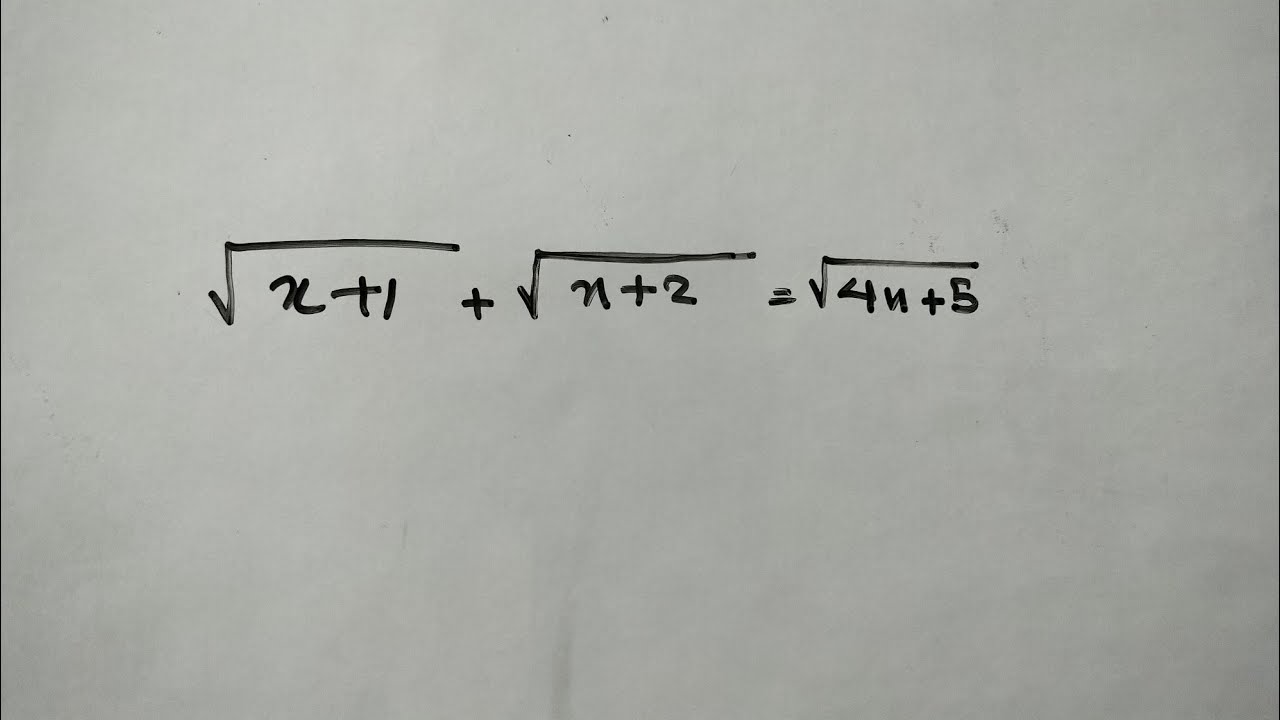 √(x+1) + √(x+2) = √(4x+5)